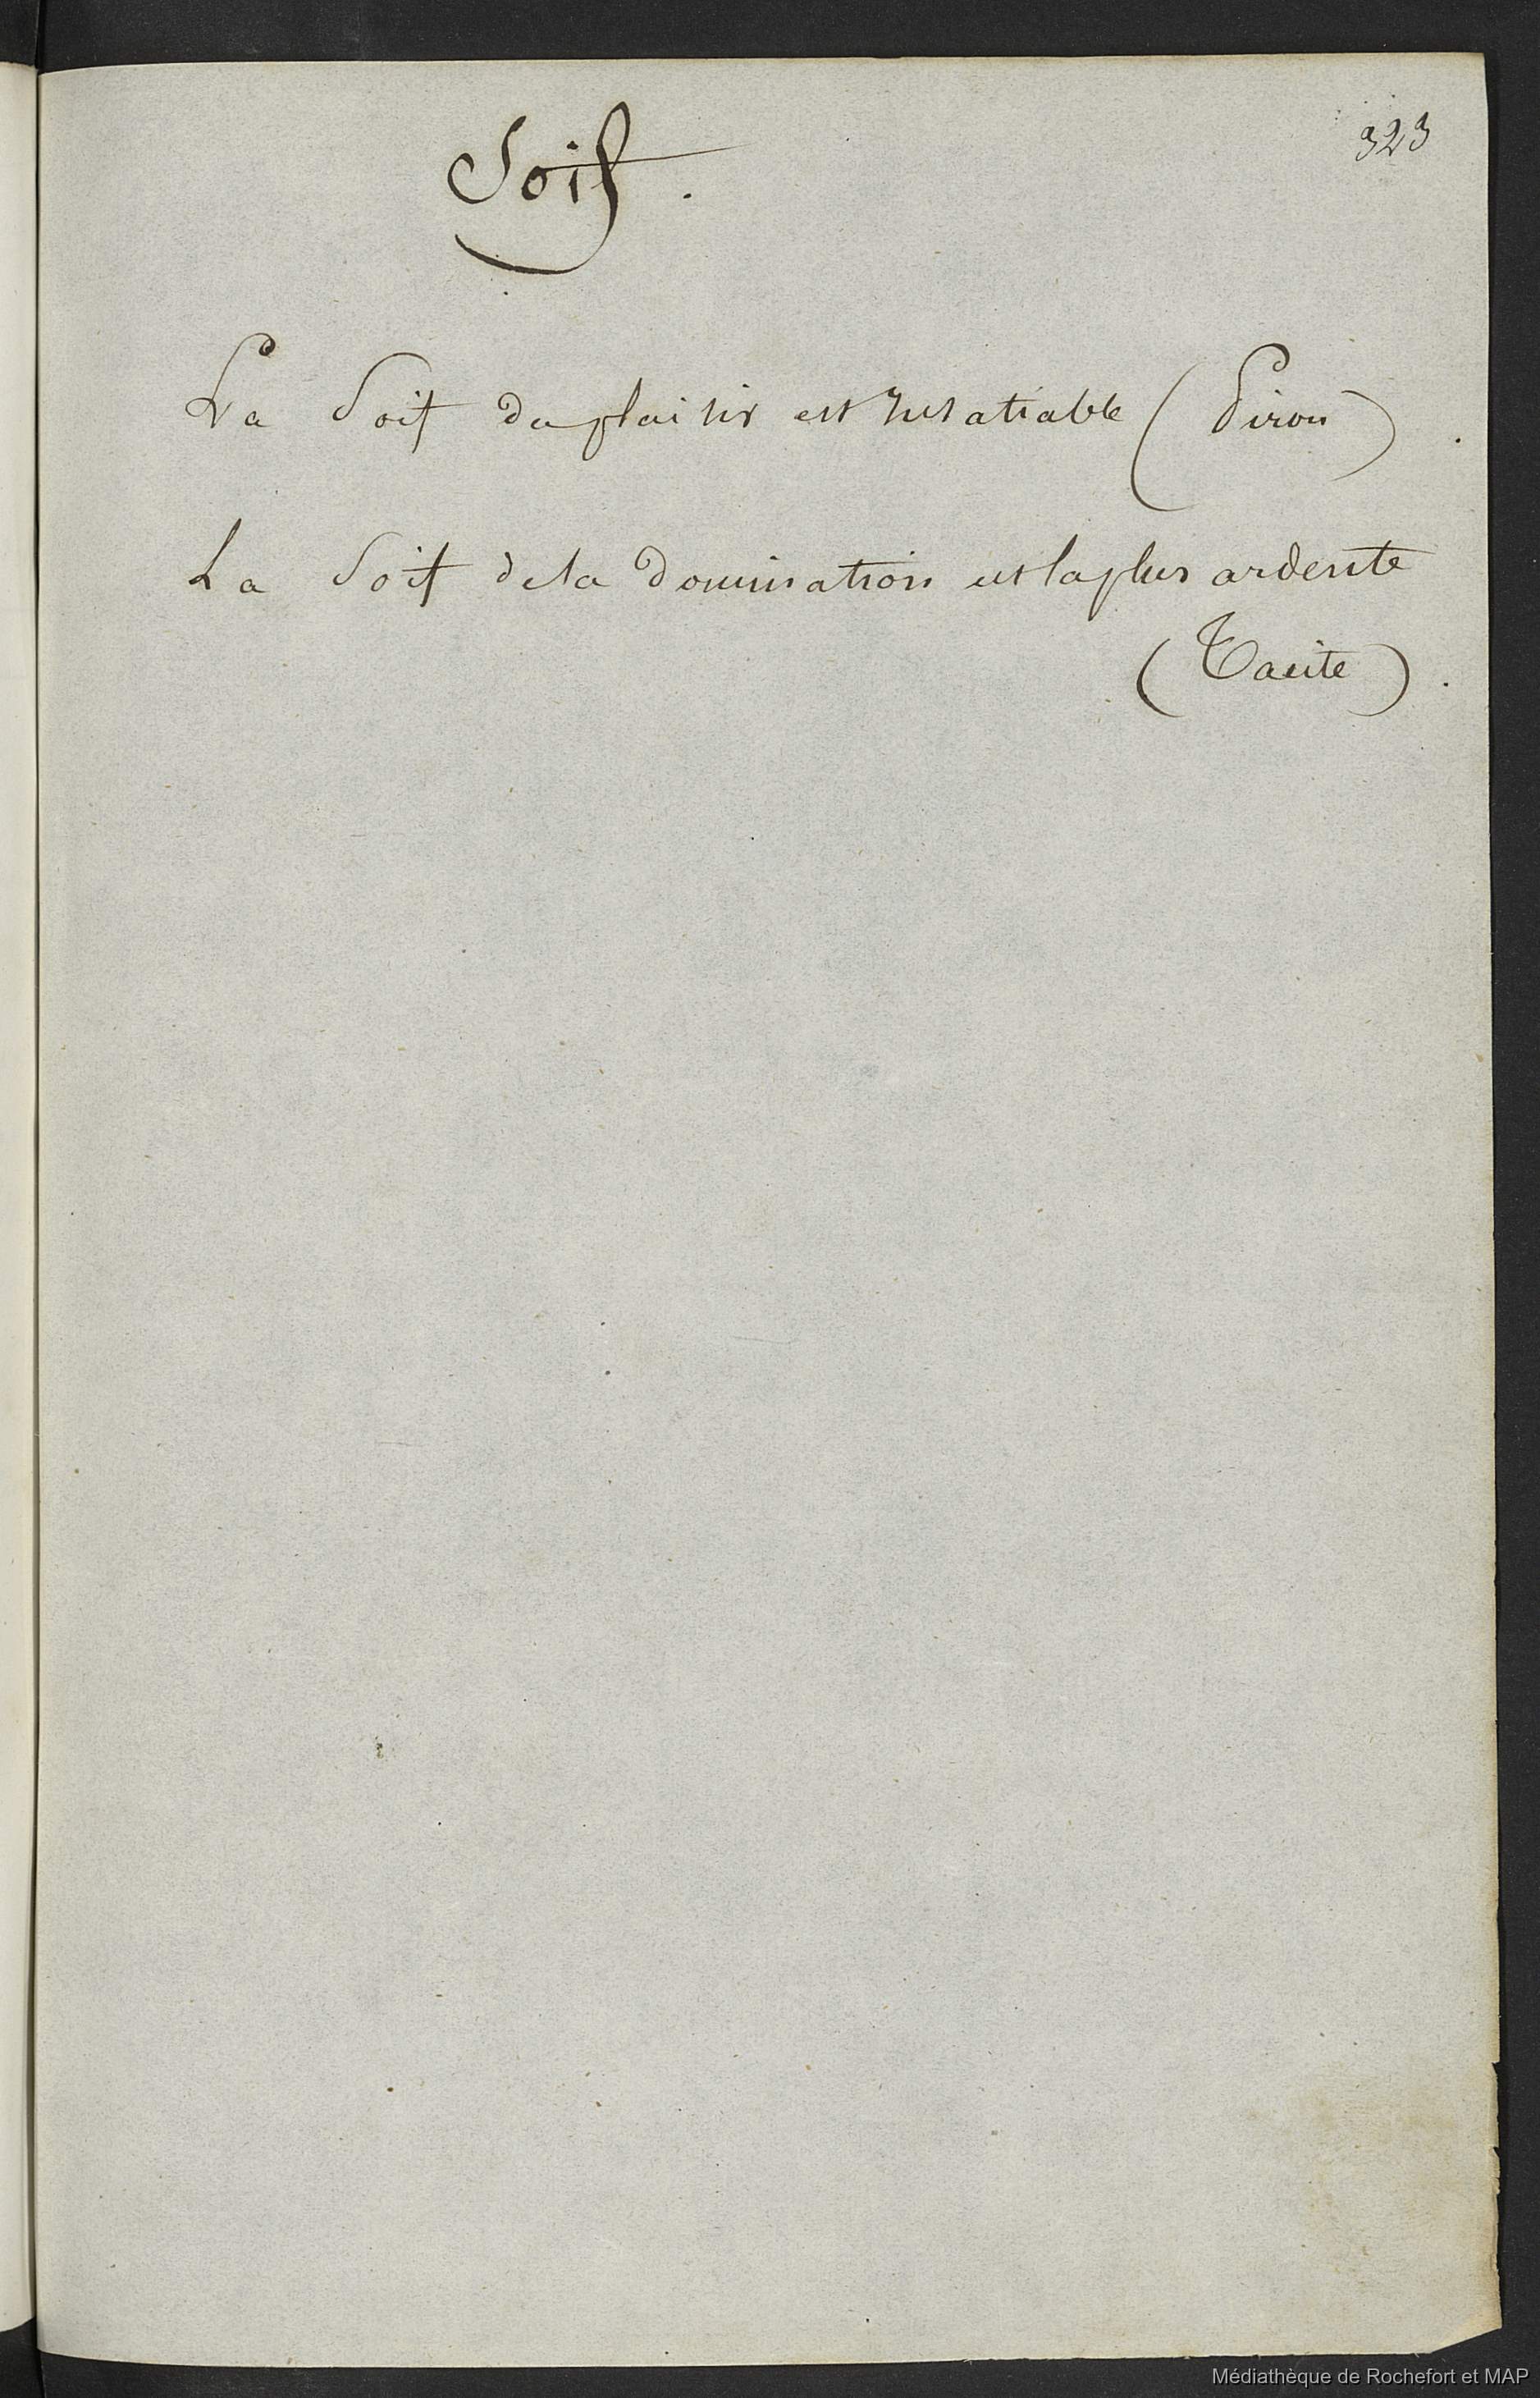 323
Soif.
La Soif du plaisir est Insatiable (Piron).
La Soif de la Domination est la plus ardente
(Tacite).
Médiathèque de Rochefort et MAP